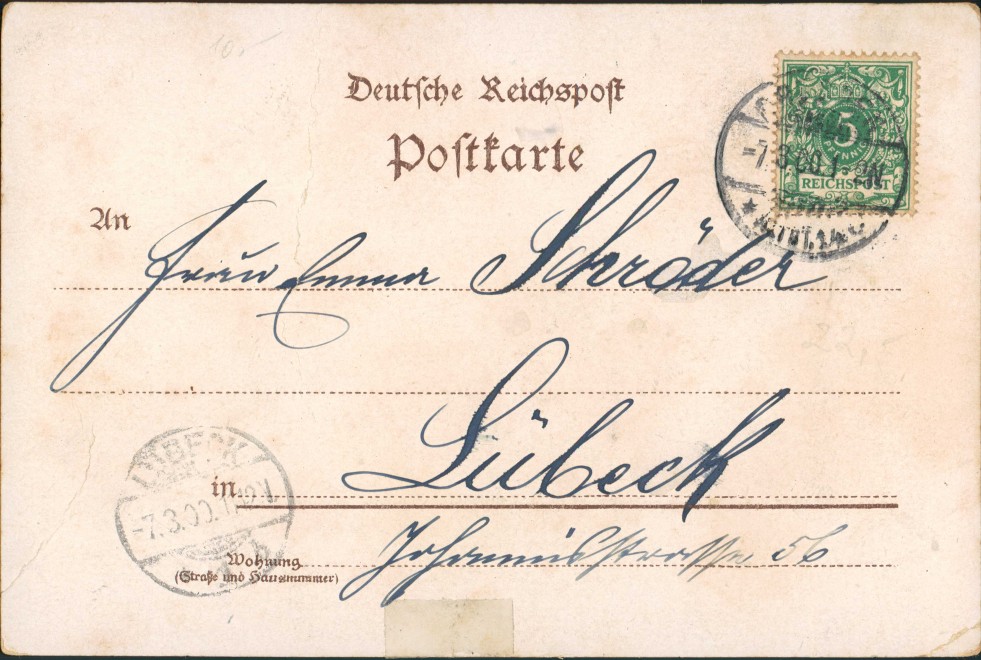 10.-
Deutsche Reichspost
Postkarte
5
PFENNIG
REICHSPOST
-7.3.00.1-2N
An
Frau Emma Schröder
22,-
Lübeck
in
LÜBECK
-7.3.00.
Johannisstrasse 56
Wohnung
(Straße und Hausnummer)